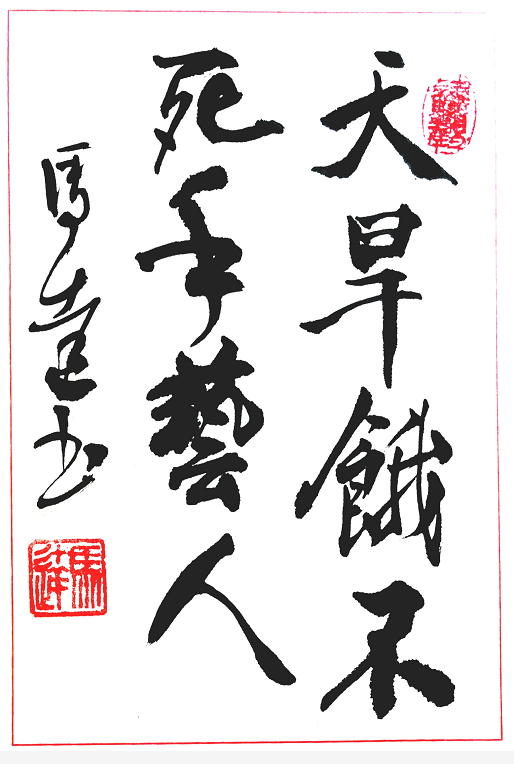 天旱餓不
死手藝人
馬達书
馬達